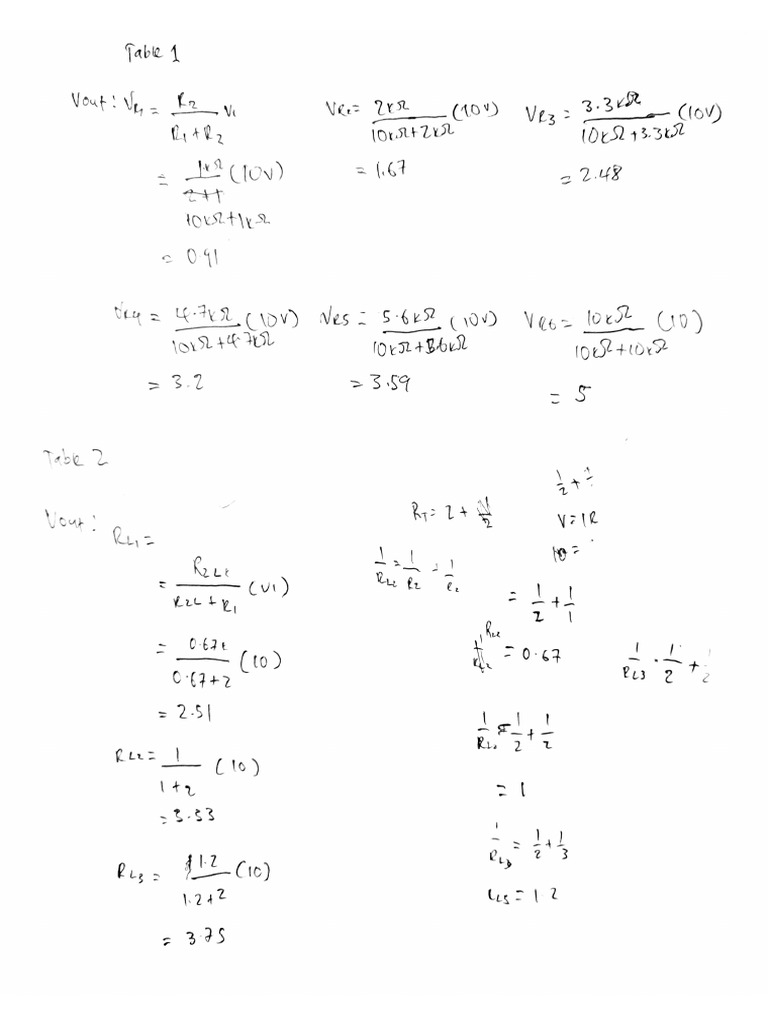 Table 1
Vout: VR1 = R2 / R1+R2 V1
= 1kΩ / 10kΩ+1kΩ (10V)
= 0.91
VR2 = 2kΩ / 10kΩ+2kΩ (10V)
= 1.67
VR3 = 3.3kΩ / 10kΩ+3.3kΩ (10V)
= 2.48
VR4 = 4.7kΩ / 10kΩ+4.7kΩ (10V)
= 3.2
VR5 = 5.6kΩ / 10kΩ+5.6kΩ (10V)
= 3.59
VR6 = 10kΩ / 10kΩ+10kΩ (10)
= 5
Table 2
Vout:
RL1 =
= R2L / R2L+R1 (V1)
= 0.67 / 0.67+2 (10)
= 2.51
RL2 = 1 / 1+2 (10)
= 3.33
RL3 = 1.2 / 1.2+2 (10)
= 3.75
RT = 2 +
1/2 +
V = IR
10 =
= 1/2 + 1/1
= 0.67
1/RL3 . 1/2 +
= 1/2 + 1/2
= 1
1/RL3 = 1/2 + 1/3
= 1.2